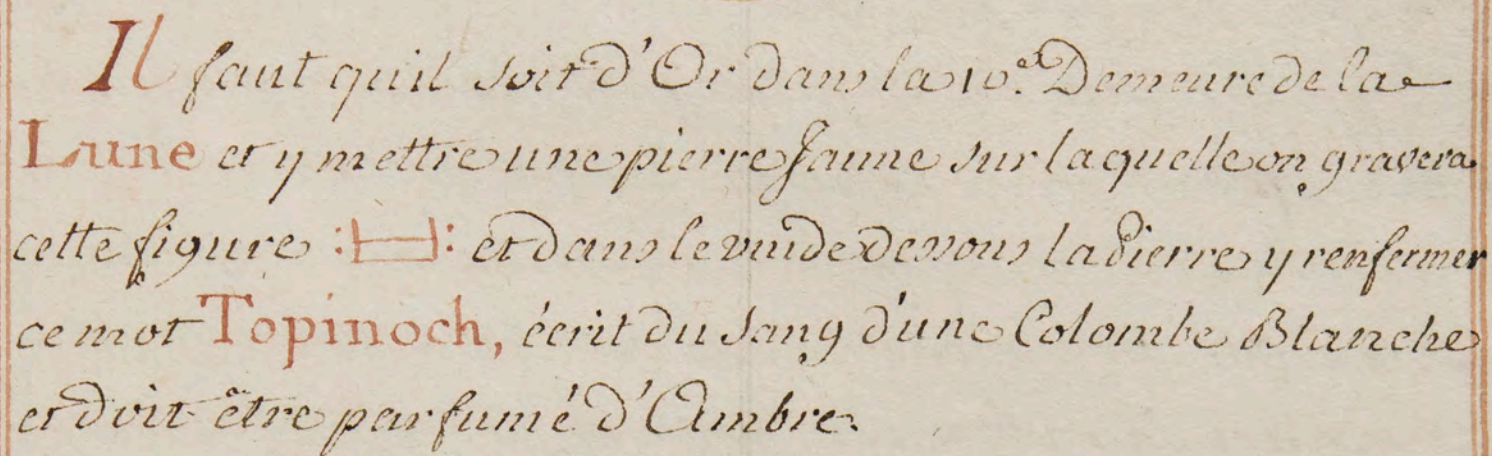 Il faut quil soit d'Or dans la 10.e Demeure de la
Lune et y mettre une pierre Jaune sur laquelle on gravera
cette figure : : et dans le vuide dessous la Pierre y renfermer
ce mot Topinoch, écrit du sang d'une Colombe Blanche
et doit être parfumé d'Ambre.